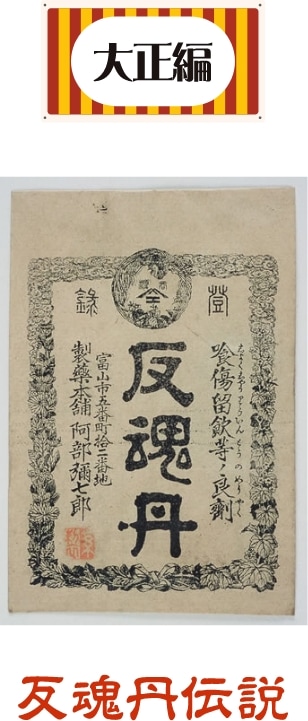 大正編
登録
喰傷留飲等ノ良剤
反魂丹
富山市五番町拾二番地
製藥本舗 阿部彌七郎
反魂丹伝説